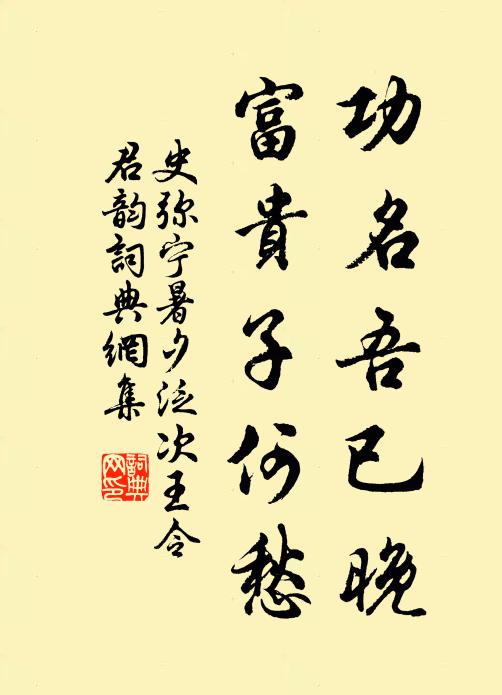 功名吾已晚
富貴子何愁
史弥宁暑夕泛次王令
君韵詞典網集
詞典
网印